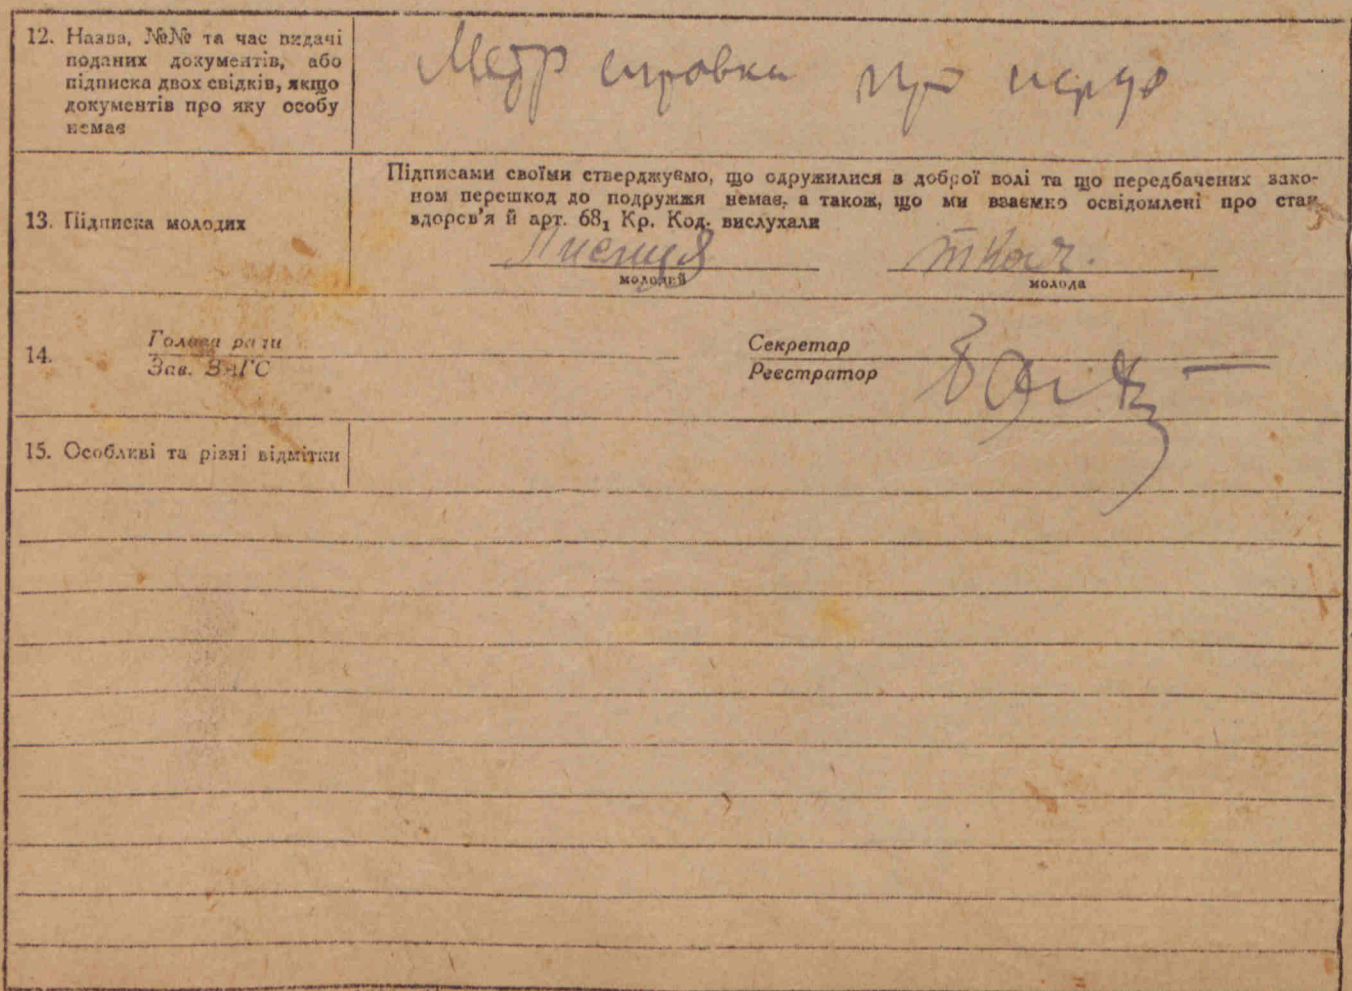 12. Назва, №№ та час видачі
поданих документів, або
підписка двох свідків, якщо
документів про яку особу
немає
Метр справка про
13. Підписка молодих
Підписами своїми стверджуємо, що одружилися з доброї волі та що передбачених зако-
ном перешкод до подружжя немає, а також, що ми взаємно освідомлені про стан
здоров'я й арт. 68₁ Кр. Код. вислухали
Ткач.
молодий
молода
14.
Голова ради
Зав. ЗАГС
Секретар
Реєстратор
15. Особливі та різні відмітки